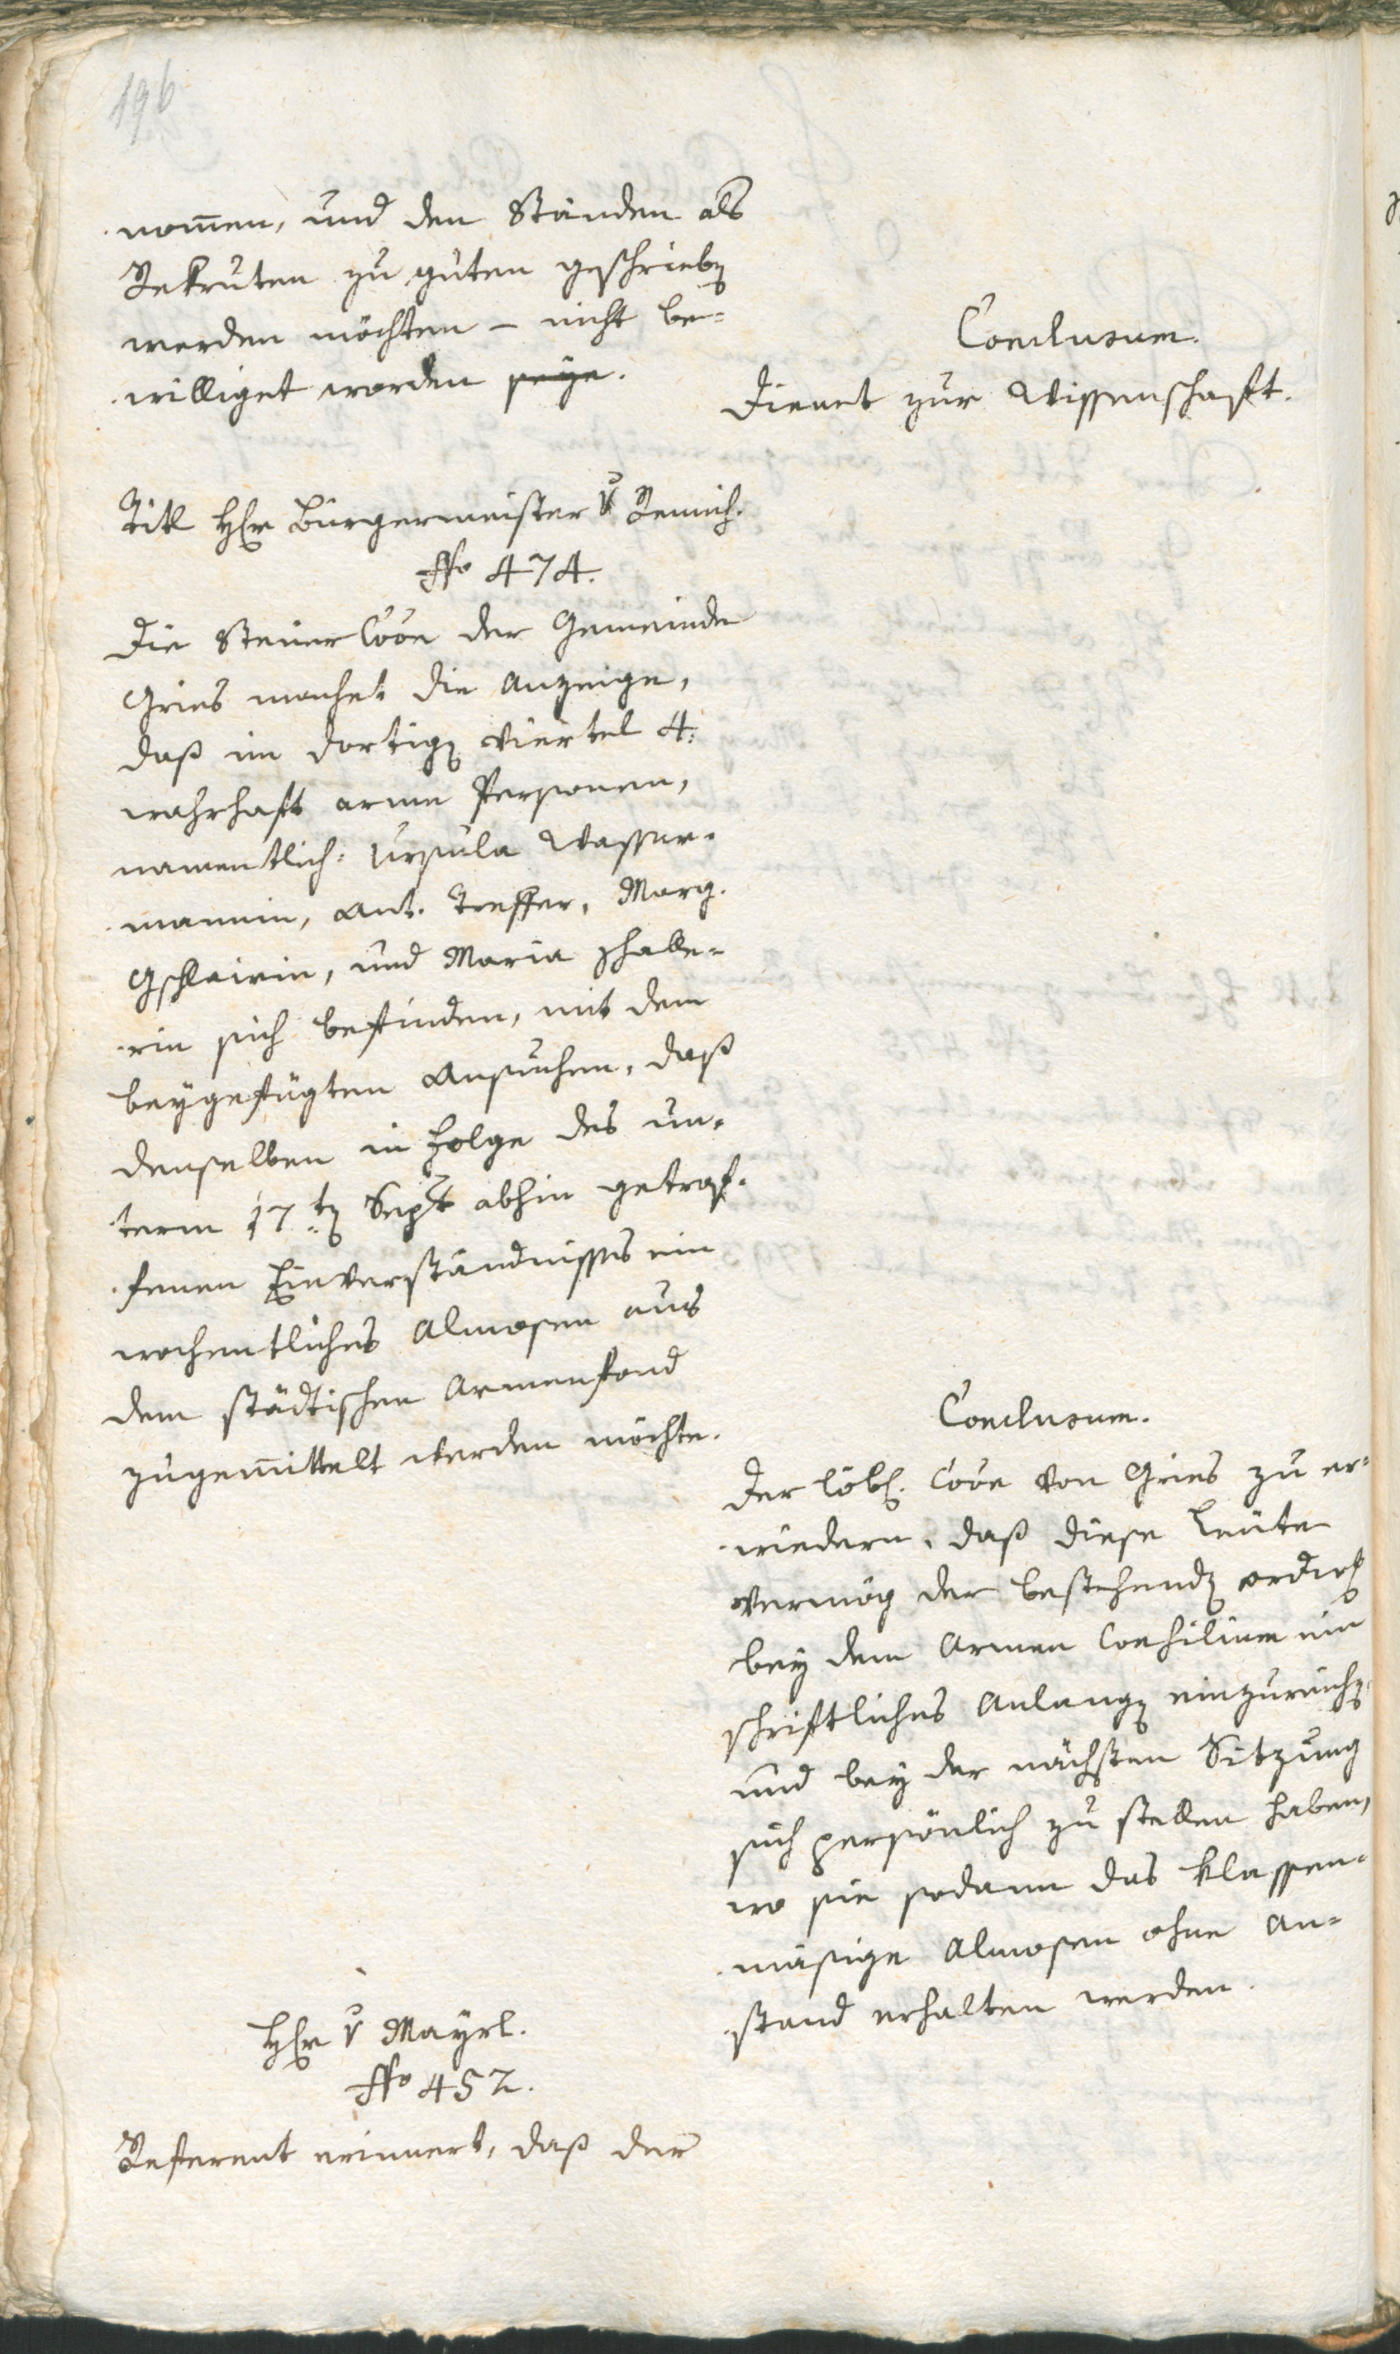 196
nom̄en, und den Ständen als
Rekruten zu guten geschrieben
werden möchten – nicht be-
williget worden seye.
Conclusum.
Dienet zur Wissenschaft.
Titl Hr Bürgermeister v
No 474.
Die Steuer Coon der Gemeinde
Gries machet die Anzeige,
daß im dortigen Viertel 4.
wahrhaft arme Personen,
namentlich: Ursula Wasser-
mannin, Ant. Treffer, Marg.
Gschleirin, und Maria
rin sich befinden, mit dem
beygefügten Ansuchen, daß
denselben in Folge des un-
term 17ten Sept abhin getrof-
fenen Einverständnisses ein
wochentliches Almosen aus
dem städtischen Armenfond
zugemittelt werden möchte.
Conclusum.
Der löbl. Coon von Gries zu er-
wiedern, daß diese Leute
vermög der bestehenden
bey dem Armen Consilium ein
schriftliches Anlangen einzureichen,
und bey der nächsten Sitzung
sich persönlich zu stellen haben,
wo sie sodann das klassen-
mäsige Almosen ohne An-
stand erhalten werden.
Hr v Mayrl.
No 452.
Referent erinnert, daß der